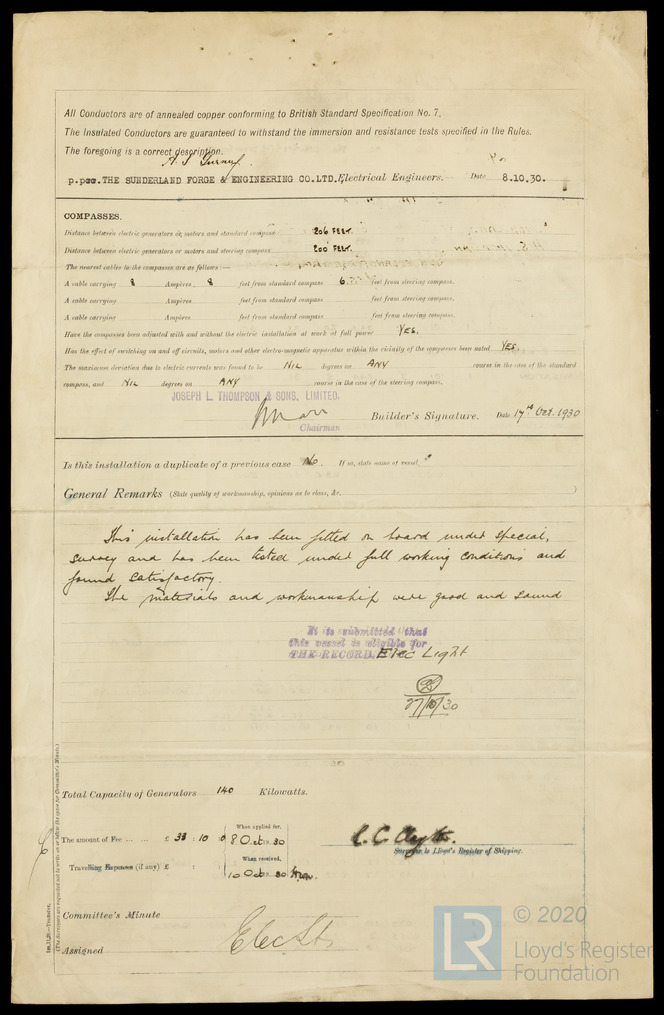 All Conductors are of annealed copper conforming to British Standard Specification No. 7,
The Insulated Conductors are guaranteed to withstand the immersion and resistance tests specified in the Rules.
The foregoing is a correct description.
THE SUNDERLAND FORGE & ENGINEERING CO. LTD. Electrical Engineers. Date 8.10.30.
COMPASSES.
Distance between electric generators or motors and standard compass 206 FEET.
Distance between electric generators or motors and steering compass 200 FEET.
The nearest cables to the compasses are as follows :—
A cable carrying 8 Ampères 8 feet from standard compass 6 feet from steering compass.
A cable carrying Ampères feet from standard compass feet from steering compass.
A cable carrying Ampères feet from standard compass feet from steering compass.
Have the compasses been adjusted with and without the electric installation at work at full power YES.
Has the effect of switching on and off circuits, motors and other electro-magnetic apparatus within the vicinity of the compasses been noted YES.
The maximum deviation due to electric currents was found to be NIL degrees on ANY course in the case of the standard
compass, and NIL degrees on ANY course in the case of the steering compass.
JOSEPH L. THOMPSON & SONS, LIMITED.
Builder's Signature. Date 17th Oct. 1930
Chairman
Is this installation a duplicate of a previous case No. If so, state name of vessel
General Remarks (State quality of workmanship, opinions as to class, &c. )
This installation has been fitted on board under special,
survey and has been tested under full working conditions and
found satisfactory.
The materials and workmanship were good and sound
It is submitted that
this vessel is eligible for
THE RECORD. Elec Light
27/10/30
Total Capacity of Generators 140 Kilowatts.
When applied for,
The amount of Fee ... ... £ 33 : 10 : 0 8 Oct 30
When received,
Travelling Expenses (if any) £ : 10 Oct 30
Surveyor to Lloyd's Register of Shipping.
Committee's Minute
Assigned Elec Lt
(The Surveyors are requested not to write on or below the space for Committee's Minute.)
© 2020
LR
Lloyd's Register
Foundation